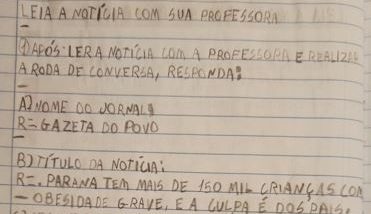 LEIA A NOTÍCIA COM SUA PROFESSORA
–
① APÓS LER A NOTÍCIA COM A PROFESSORA E REALIZAR
A RODA DE CONVERSA, RESPONDA:
–
A) NOME DO JORNAL:
R= GAZETA DO POVO
–
B) TÍTULO DA NOTÍCIA:
R=. PARANA TEM MAIS DE 150 MIL CRIANÇAS COM
– OBESIDADE GRAVE, E A CULPA É DOS PAIS.